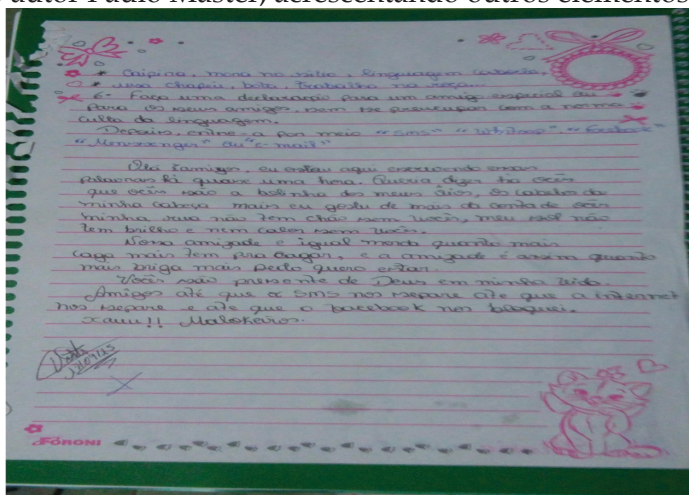 autor Paulo Master, acrescentando outros elementos
* Caipira, mora no sítio, linguagem cabocla,
* usa chapéu, bota, trabalha na roça.
6- Faça uma declaração para um amigo especial ou
para os seus amigos, sem se preocupar com a norma
culta da linguagem.
Depois, envie a por meio "SMS" "Whatsap" "Facebook"
"Menssenger" ou "e-mail"
Olá Zamigos, eu estou aqui escrevendo essas
palavras há quase uma hora. Queria dizer pra ocêis
que ocêis são a bolinha dos meus óios, os cabelos da
minha cabeça mais eu gostu de mais da conta de ocêis
minha rua não tem chão sem vocês, meu sol não
tem brilho e nem calor sem vocês.
Nossa amizade e igual merda quanto mais
caga mais tem pra cagar, e a amizade é assim quanto
mais briga mais perto quero estar.
Vocêis são presente de Deus em minha vida.
Amigos até que o SMS nos separe ate que a internet
nos separe e ate que o facebook nos bloquei.
xauu!! Malokeiros.
FORONI